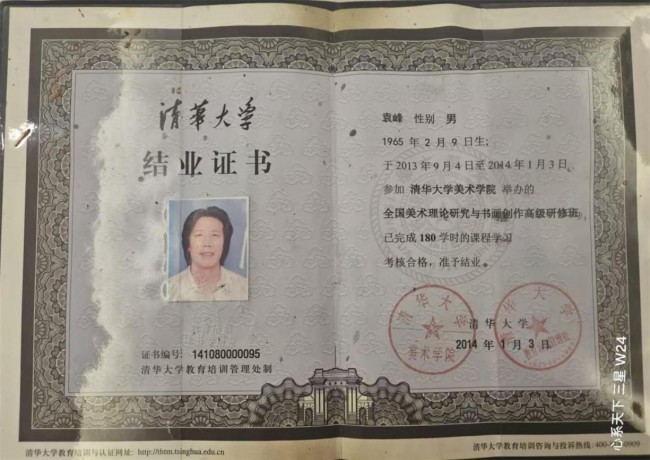 清华大学
结业证书
证书编号: 141080000095
清华大学教育培训管理处制
袁峰 性别 男
1965 年 2 月 9 日生;
于 2013 年 9 月 4 日至 2014 年 1 月 3 日
参加 清华大学美术学院 举办的
全国美术理论研究与书画创作高级研修班
已完成 180 学时的课程学习
考核合格，准予结业。
清华大学
美术学院
清华大学
清华大学
2014 年 1 月 3 日
清华大学教育培训与认证网址: http://thtm.tsinghua.edu.cn
清华大学教育培训咨询与投诉热线:400-
0909
心系天下三星 W24